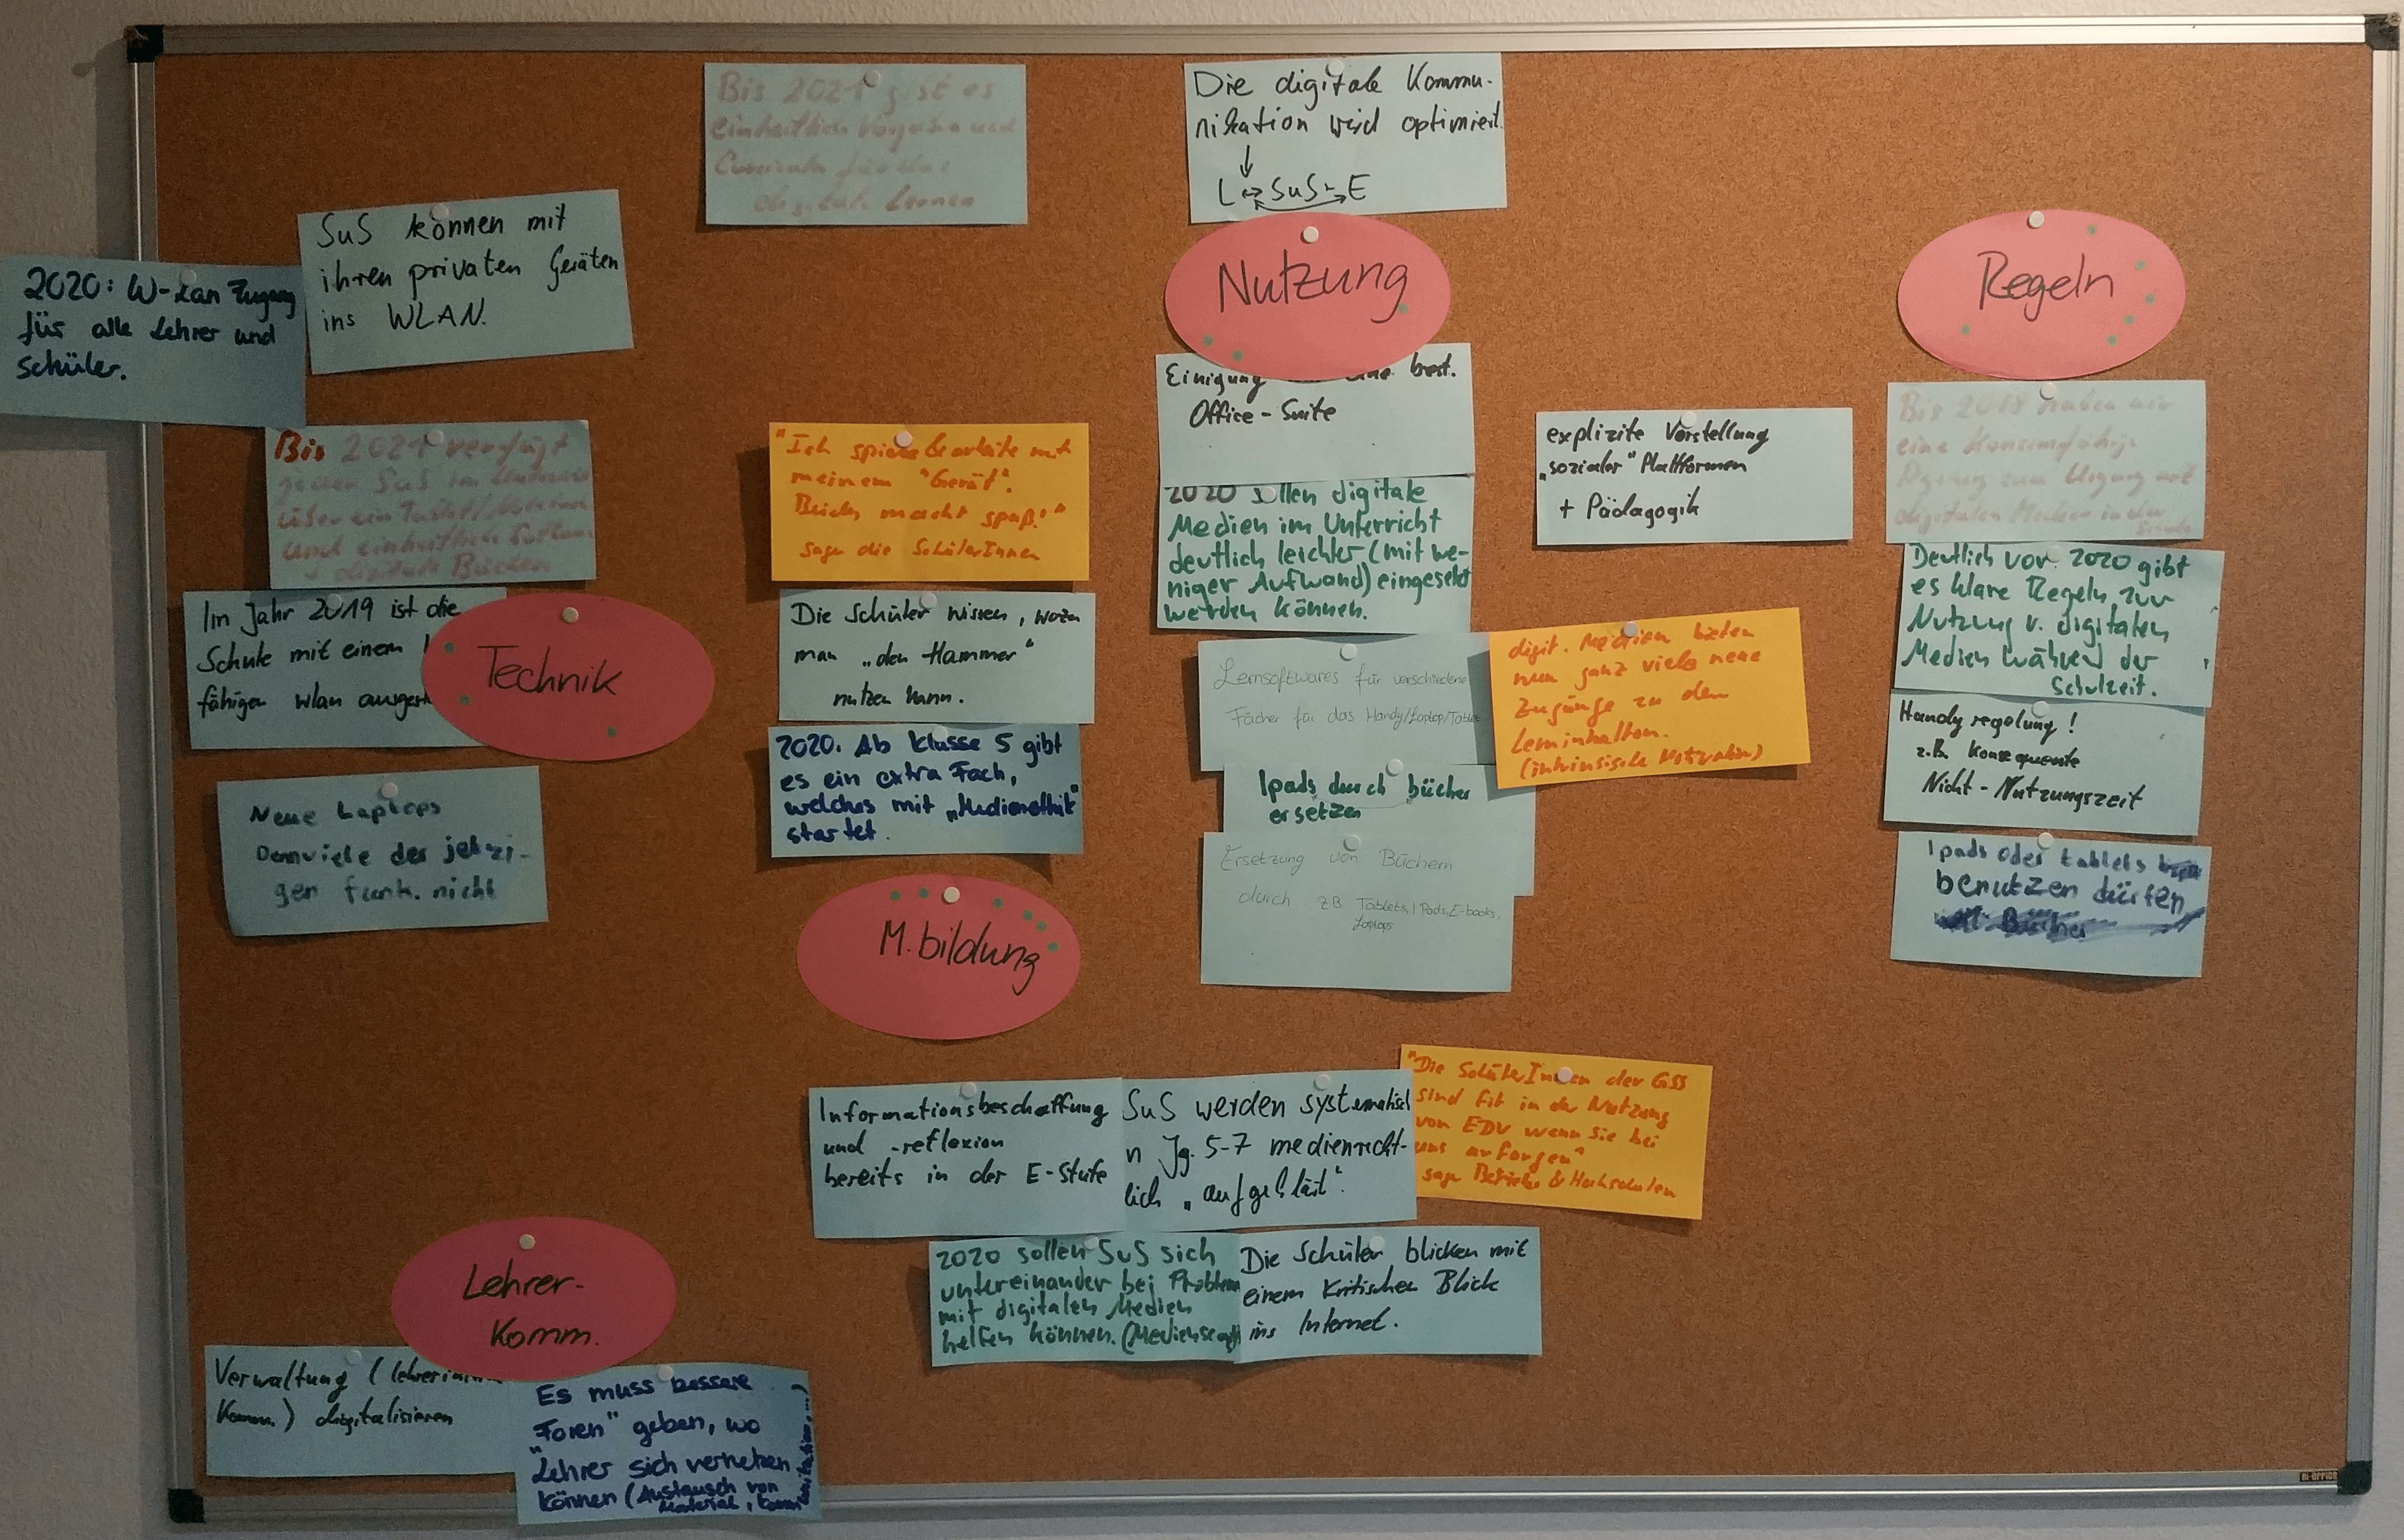 Bis 2021 gibt es
einheitliche Vorgaben und
Curricula für das
digitale Lernen
Die digitale Kommu-
nikation wird optimiert.
L ↔ SuS - E
Nutzung
Regeln
SuS können mit
ihren privaten Geräten
ins WLAN.
2020: W-Lan Zugang
für alle Lehrer und
Schüler.
Bis 2021 verfügt
jeder SuS im
über ein Tablet
und einheitliche
+ digitale Bücher
Im Jahr 2019 ist die
Schule mit einem
fähigen wlan
Technik
Neue Laptops
Denn viele der jetzi-
gen funk. nicht
"Ich spiele & arbeite mit
meinem "Gerät".
Beides macht spaß!"
sagen die SchülerInnen
Die Schüler wissen, wozu
man „den Hammer"
nutzen kann.
2020. Ab Klasse 5 gibt
es ein extra Fach,
welches mit „Medienethik"
startet.
M.bildung
Einigung best.
Office-Suite
2020 sollen digitale
Medien im Unterricht
deutlich leichter (mit we-
niger Aufwand) eingesetzt
werden können.
Lernsoftwares für verschiedene
Fächer für das Handy/Laptop/Tablet
Ipads durch bücher
ersetzen
Ersetzung von Büchern
durch zB Tablets, I Pads, E-books,
Laptops
explizite Vorstellung
„sozialer" Plattformen
+ Pädagogik
digit. Medien bieten
nun ganz viele neue
Zugänge zu den
Lerninhalten.
(intrinsische Motivation)
Bis 2019 haben wir
eine
zum Umgang mit
digitalen Medien in der
Schule
Deutlich vor 2020 gibt
es klare Regeln zur
Nutzung v. digitalen
Medien während der
Schulzeit.
Handyregelung!
z.B. konsequente
Nicht-Nutzungszeit
Ipads oder tablets
benutzen dürfen
Bücher
Informationsbeschaffung
und -reflexion
bereits in der E-Stufe
SuS werden systematisch
n Jg. 5-7 medienrecht-
lich „aufgeklärt".
"Die SchülerInnen der GSS
sind fit in der Nutzung
von EDV wenn sie bei
uns anfangen"
sagen Betriebe & Hochschulen
2020 sollen SuS sich
untereinander bei Problemen
mit digitalen Medien
helfen können. (Mediensc
Die Schüler blicken mit
einem kritischen Blick
ins Internet.
Lehrer-
Komm.
Verwaltung (
Komm.) digitalisieren
Es muss bessere
"Foren" geben, wo
Lehrer sich vernetzen
können (Austausch von
Material,